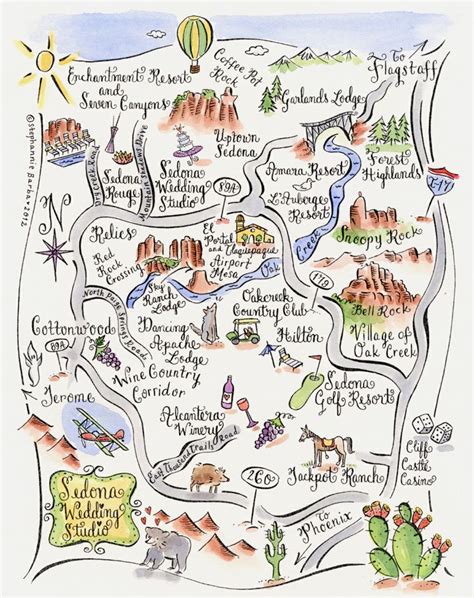 Enchantment Resort
and
Seven Canyons
Coffee Pot
Rock
To
Flagstaff
Garlands Lodge
Uptown
Sedona
©Stephannie Barba 2012
Sedona
Rouge
Sedona
Wedding
Studio
89A
Amara Resort
L'Auberge
Resort
Forest
Highlands
I-17
N
Relics
Red
Rock
Crossing
El
Portal
and Tlaquepaque
Airport
Mesa
Oak
Creek
Snoopy Rock
179
Sky
Ranch Lodge
Bell Rock
Village of
Oak Creek
Oakcreek
Country Club
Hilton
Cottonwood
89A
Dancing
Apache
Lodge
Wine Country
Corridor
Jerome
Alcantera
Winery
Sedona
Golf Resort
260
Jackpot Ranch
Cliff
Castle
Casino
Sedona
Wedding
Studio
To
Phoenix